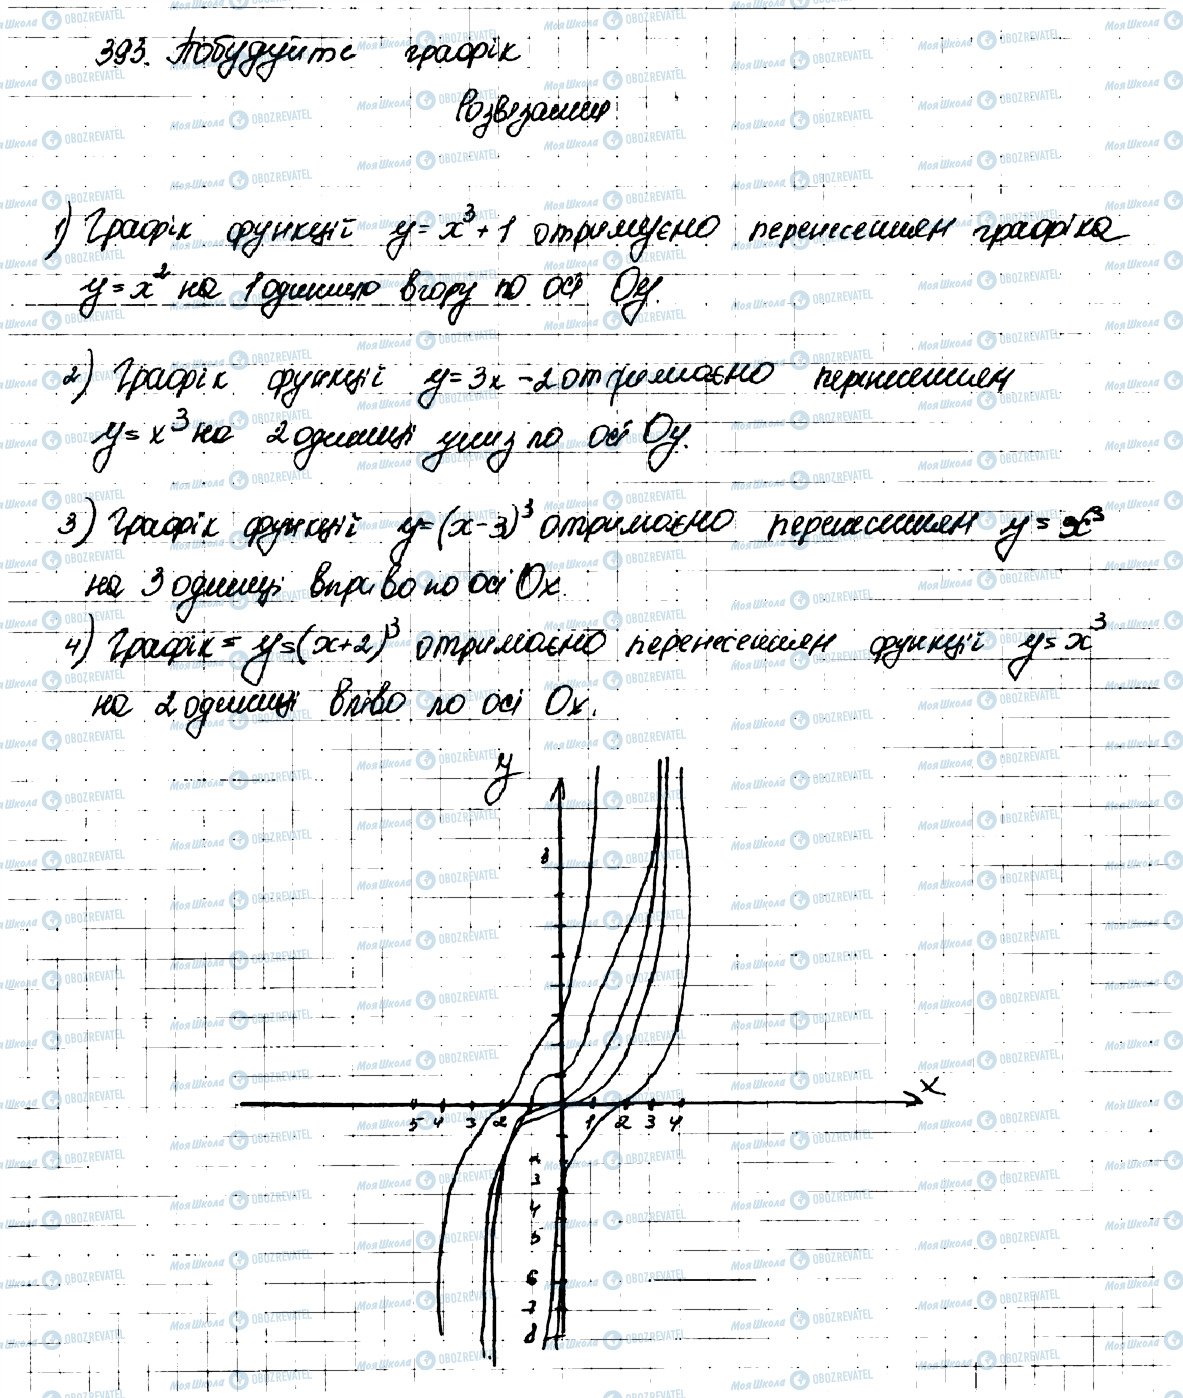 393. Побудуйте графік
Розв'язання
1) Графік функції y = x³ + 1 отримуємо перенесенням графіка
y = x² на 1 одиницю вгору по осі Oy.
2) Графік функції y = 3x - 2 отримаємо перенесенням
y = x³ на 2 одиниці униз по осі Oy.
3) Графік функції y = (x - 3)³ отримаємо перенесенням y = x³
на 3 одиниці вправо по осі Ox.
4) Графік = y = (x + 2)³ отримаємо перенесенням функції y = x³
на 2 одиниці вліво по осі Ox.
y
8
x
5 4 3 2 1 2 3 4
3
4
5
6
7
8
Моя Школа OBOZREVATEL